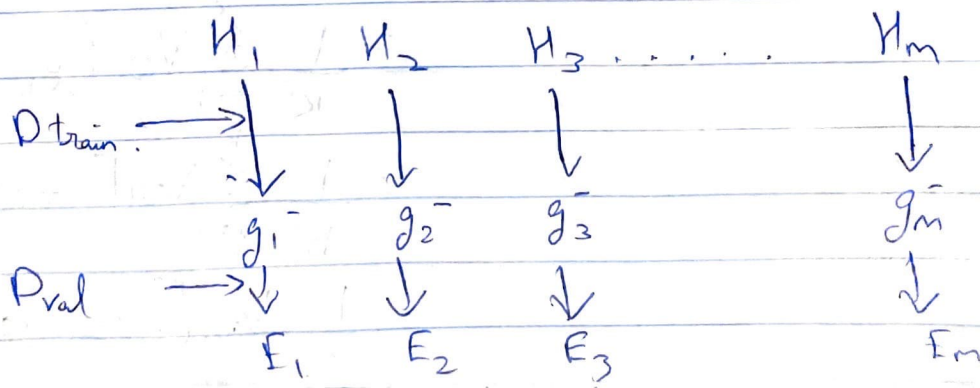 H₁ H₂ H₃ . . . . . . Hm
D train.
g₁⁻ g₂⁻ g₃⁻ gm⁻
Dval
E₁ E₂ E₃ Em